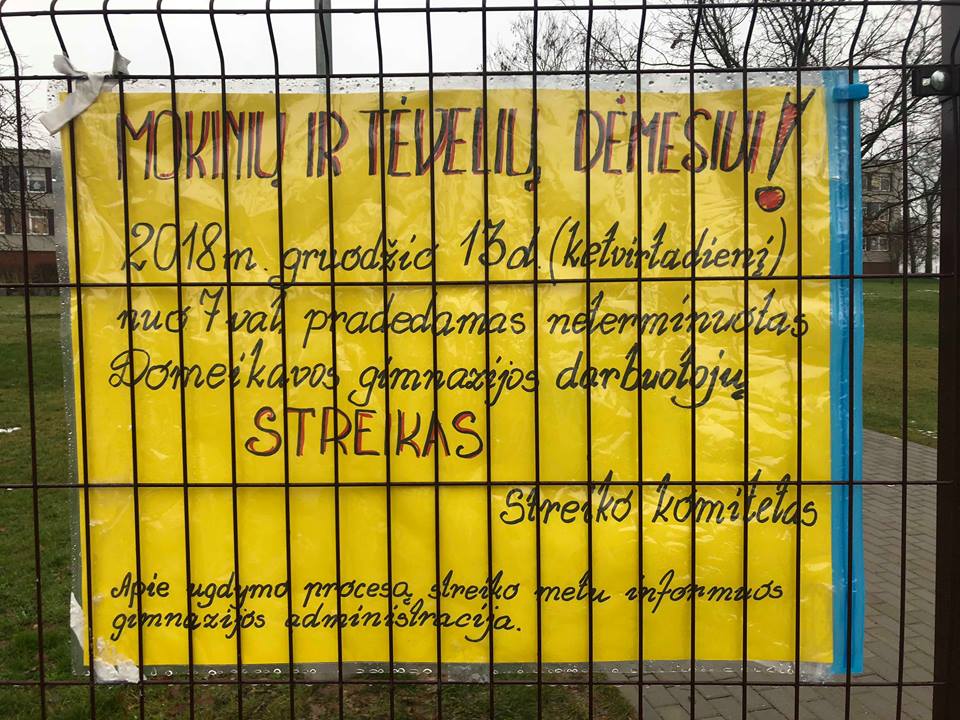 MOKINIŲ IR TĖVELIŲ DĖMESIUI!
2018 m. gruodžio 13 d. (ketvirtadienį)
nuo 7 val. pradedamas neterminuotas
Domeikavos gimnazijos darbuotojų
STREIKAS
Streiko komitetas
Apie ugdymo procesą streiko metu informuos
gimnazijos administracija.